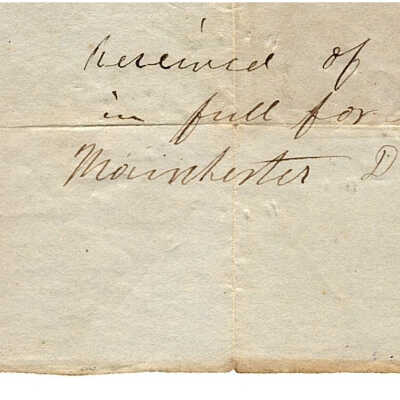 Received of
in full for
Mainchester D